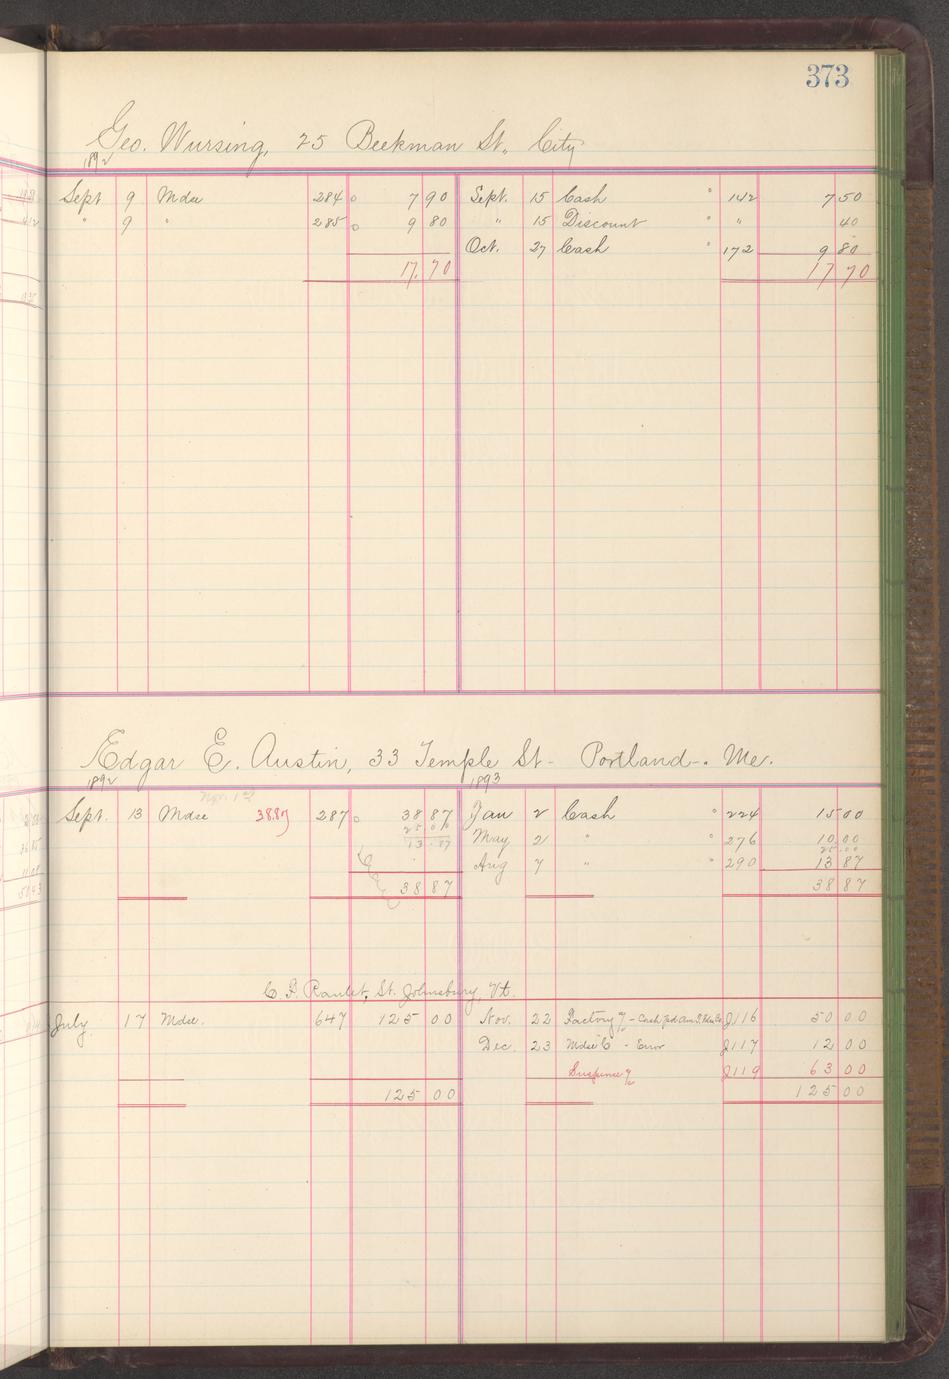 373
Geo. Wursing, 25 Beekman St., City
1892
Sept 9 Mdse 284 7 90 Sept. 15 Cash " 142 7 50
" 9 " 285 9 80 " 15 Discount " " 40
Oct. 27 Cash " 172 9 80
17.70 17 70
Edgar E. Austin, 33 Temple St - Portland -. Me.
1892 1893
Sept. 13 Mdse 38.87 287 38 87 Jan 2 Cash " 224 15 00
25 00
13.87 May 2 " " 276 10.00
25.00
Aug 7 " " 290 13 87
38 87 38 87
C. P. Ranlet, St. Johnsbury, Vt.
July 17 Mdse. 647 125 00 Nov. 22 Factory - Cash J116 50 00
Dec. 23 Mdse % - Error J117 12 00
Suspense % J119 63 00
125 00 125 00